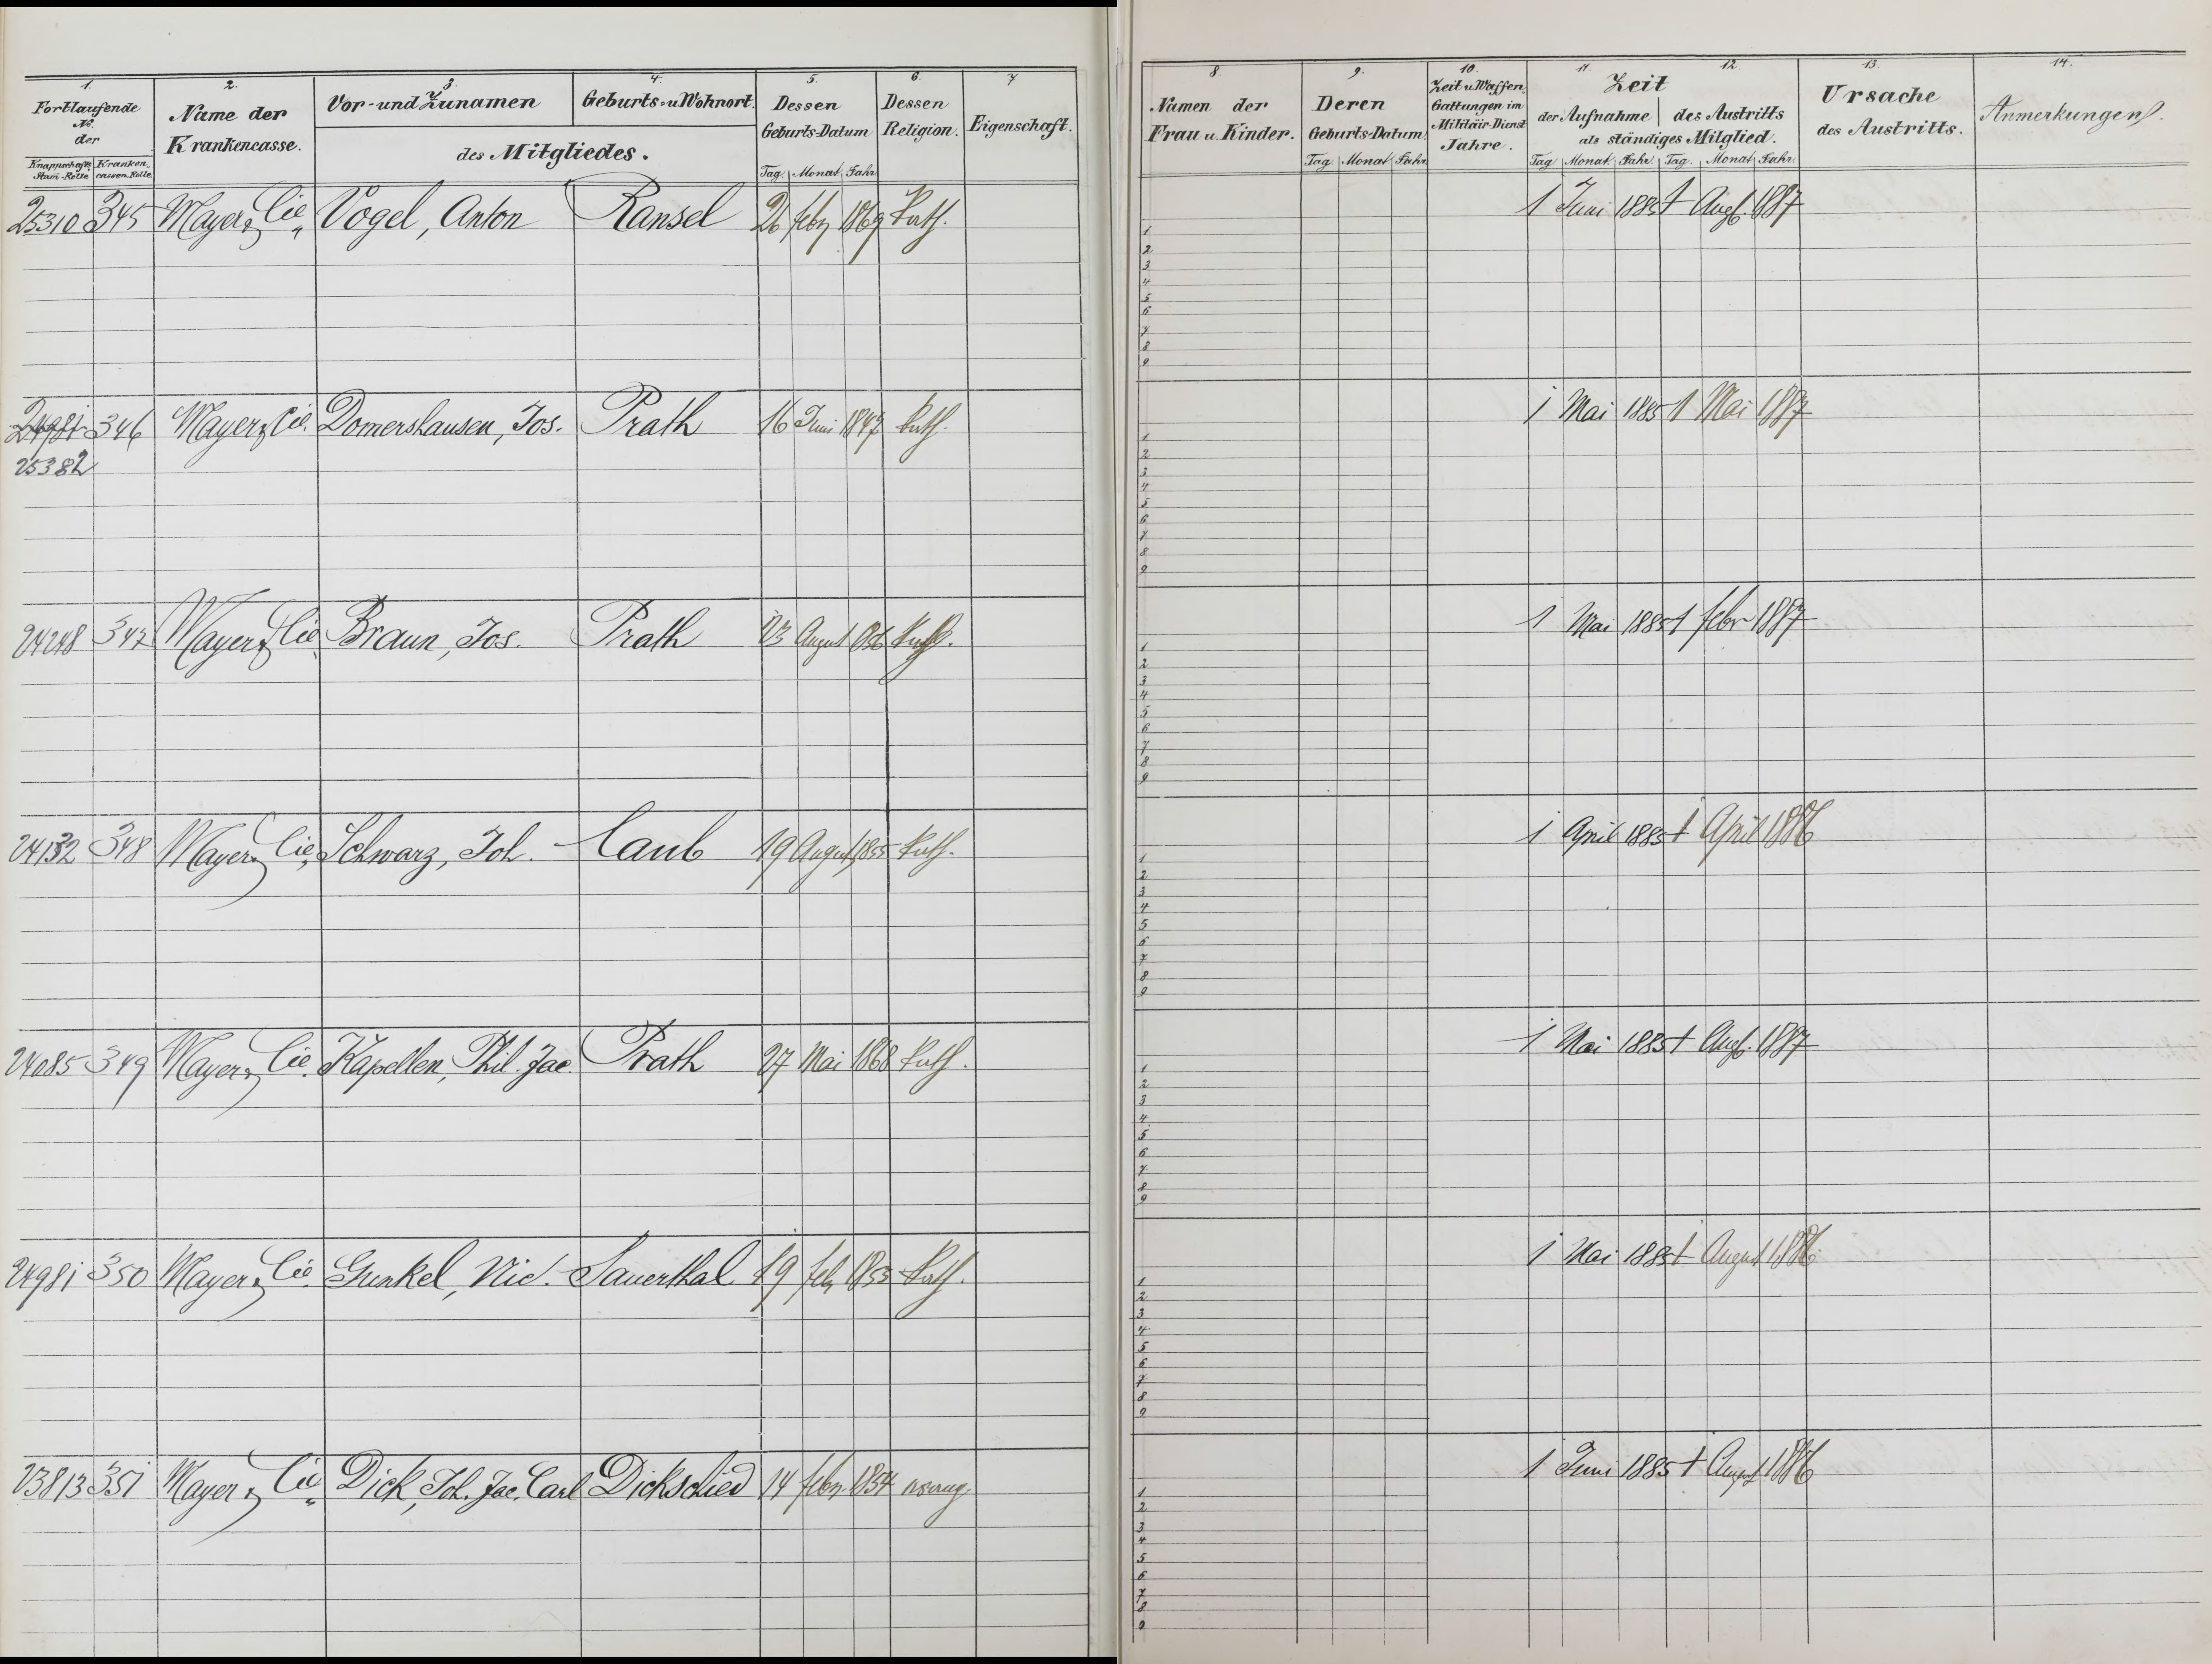 1. 2. 3. 4. 5. 6. 7
Fortlaufende No. der
Knappschafts Stam-Rolle Kranken cassen-Rolle
Name der Krankencasse.
Vor- und Zunamen Geburts- u Wohnort.
des Mitgliedes.
Dessen Geburts-Datum
Tag. Monat Jahr.
Dessen Religion.
Eigenschaft.
25310 345 Mayer & Cie. Vogel, Anton Ransel 26 febr 1869 Kath.
24981 346 Mayer & Cie. Domershausen, Jos. Prath 16 Juni 1847 kath.
25382
24248 347 Mayer & Cie. Braun, Jos. Prath 23 August 856 Kath.
24132 348 Mayer & Cie. Schwarz, Joh. Caub 19 August 1855 kath.
24085 349 Mayer & Cie. Kapellen, Phil. Jac. Prath 27 Mai 1868 kath.
24981 350 Mayer & Cie. Gunkel, Nic. Sauerthal 19 feb 1855 kath.
23813 351 Mayer & Cie. Dick, Joh. Jac. Carl Dickschied 14 febr. 1854 evang.
8. 9. 10. 11. 12. 13. 14.
Namen der Frau u. Kinder.
Deren Geburts-Datum
Tag. Monat Jahr
Zeit u. Waffen Gattungen im Militäir Dienst Jahre.
Zeit
der Aufnahme des Austritts
als ständiges Mitglied.
Tag Monat Jahr Tag. Monat Jahr
Ursache des Austritts.
Anmerkungen.
1 Juni 1885 1 Augt. 1887
1
2
3
4
5
6
7
8
9
1 Mai 1885 1 Mai 1887
1
2
3
4
5
6
7
8
9
1 Mai 1885 1 febr 1887
1
2
3
4
5
6
7
8
9
1 April 1885 1 April 1886
1
2
3
4
5
6
7
8
9
1 Mai 1885 1 Augt. 1887
1
2
3
4
5
6
7
8
9
1 Mai 1885 1 August 1886
1
2
3
4
5
6
7
8
9
1 Juni 1885 1 August 1886
1
2
3
4
5
6
7
8
9